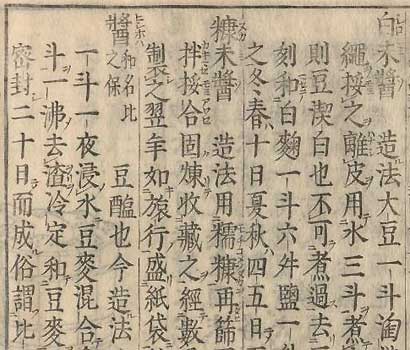 白未醬 造法大豆一斗淘
繩挼之離皮用水三斗煮
則豆潔白也不可煮過去
刻和白麴一斗六舛鹽一
之冬春十日夏秋四五日
糠未醬 造法用糯糠再篩
拌挼合固煉收藏之經數
製之翌年如旅行盛紙袋
醬 和名比之保 豆醢也今造法
一斗一夜浸水豆麥混合
斗一沸去渣冷定和豆麥
密封二十日而成俗謂比